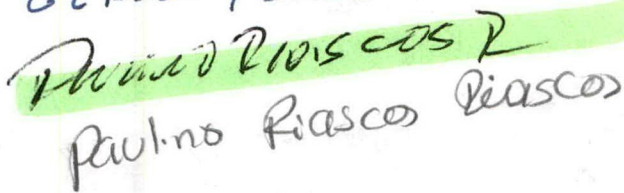 Paulino Riascos R
Paulino Riascos Riascos